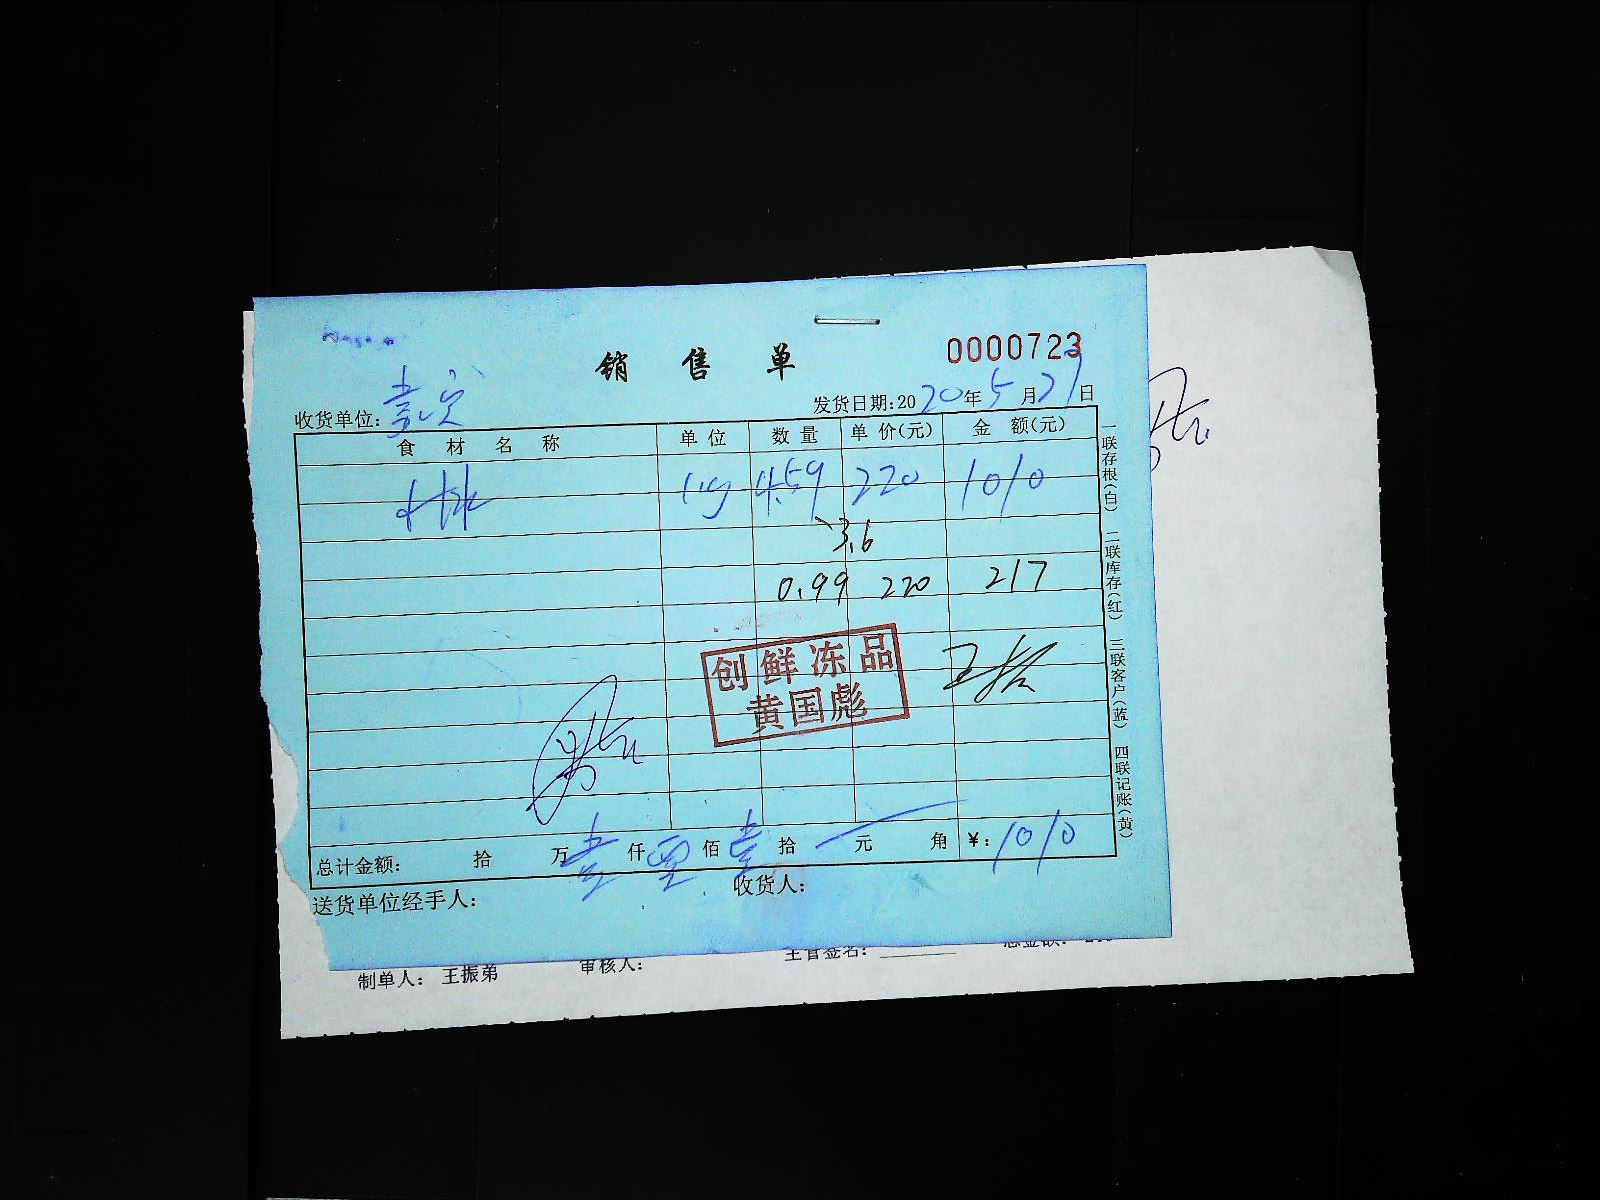 销售单
0000723
收货单位: 嘉定
发货日期:2020年5月27日
食材名称 单位 数量 单价(元) 金额(元)
kg 4.59 220 1010
3.6
0.99 220 217
创鲜冻品
黄国彪
总计金额: 拾 万 壹 仟 零 佰 壹 拾 元 角 ¥: 1010
送货单位经手人: 收货人:
一联存根(白) 二联库存(红) 三联客户(蓝) 四联记账(黄)
制单人: 王振弟 审核人: 主管签名: 总金额: